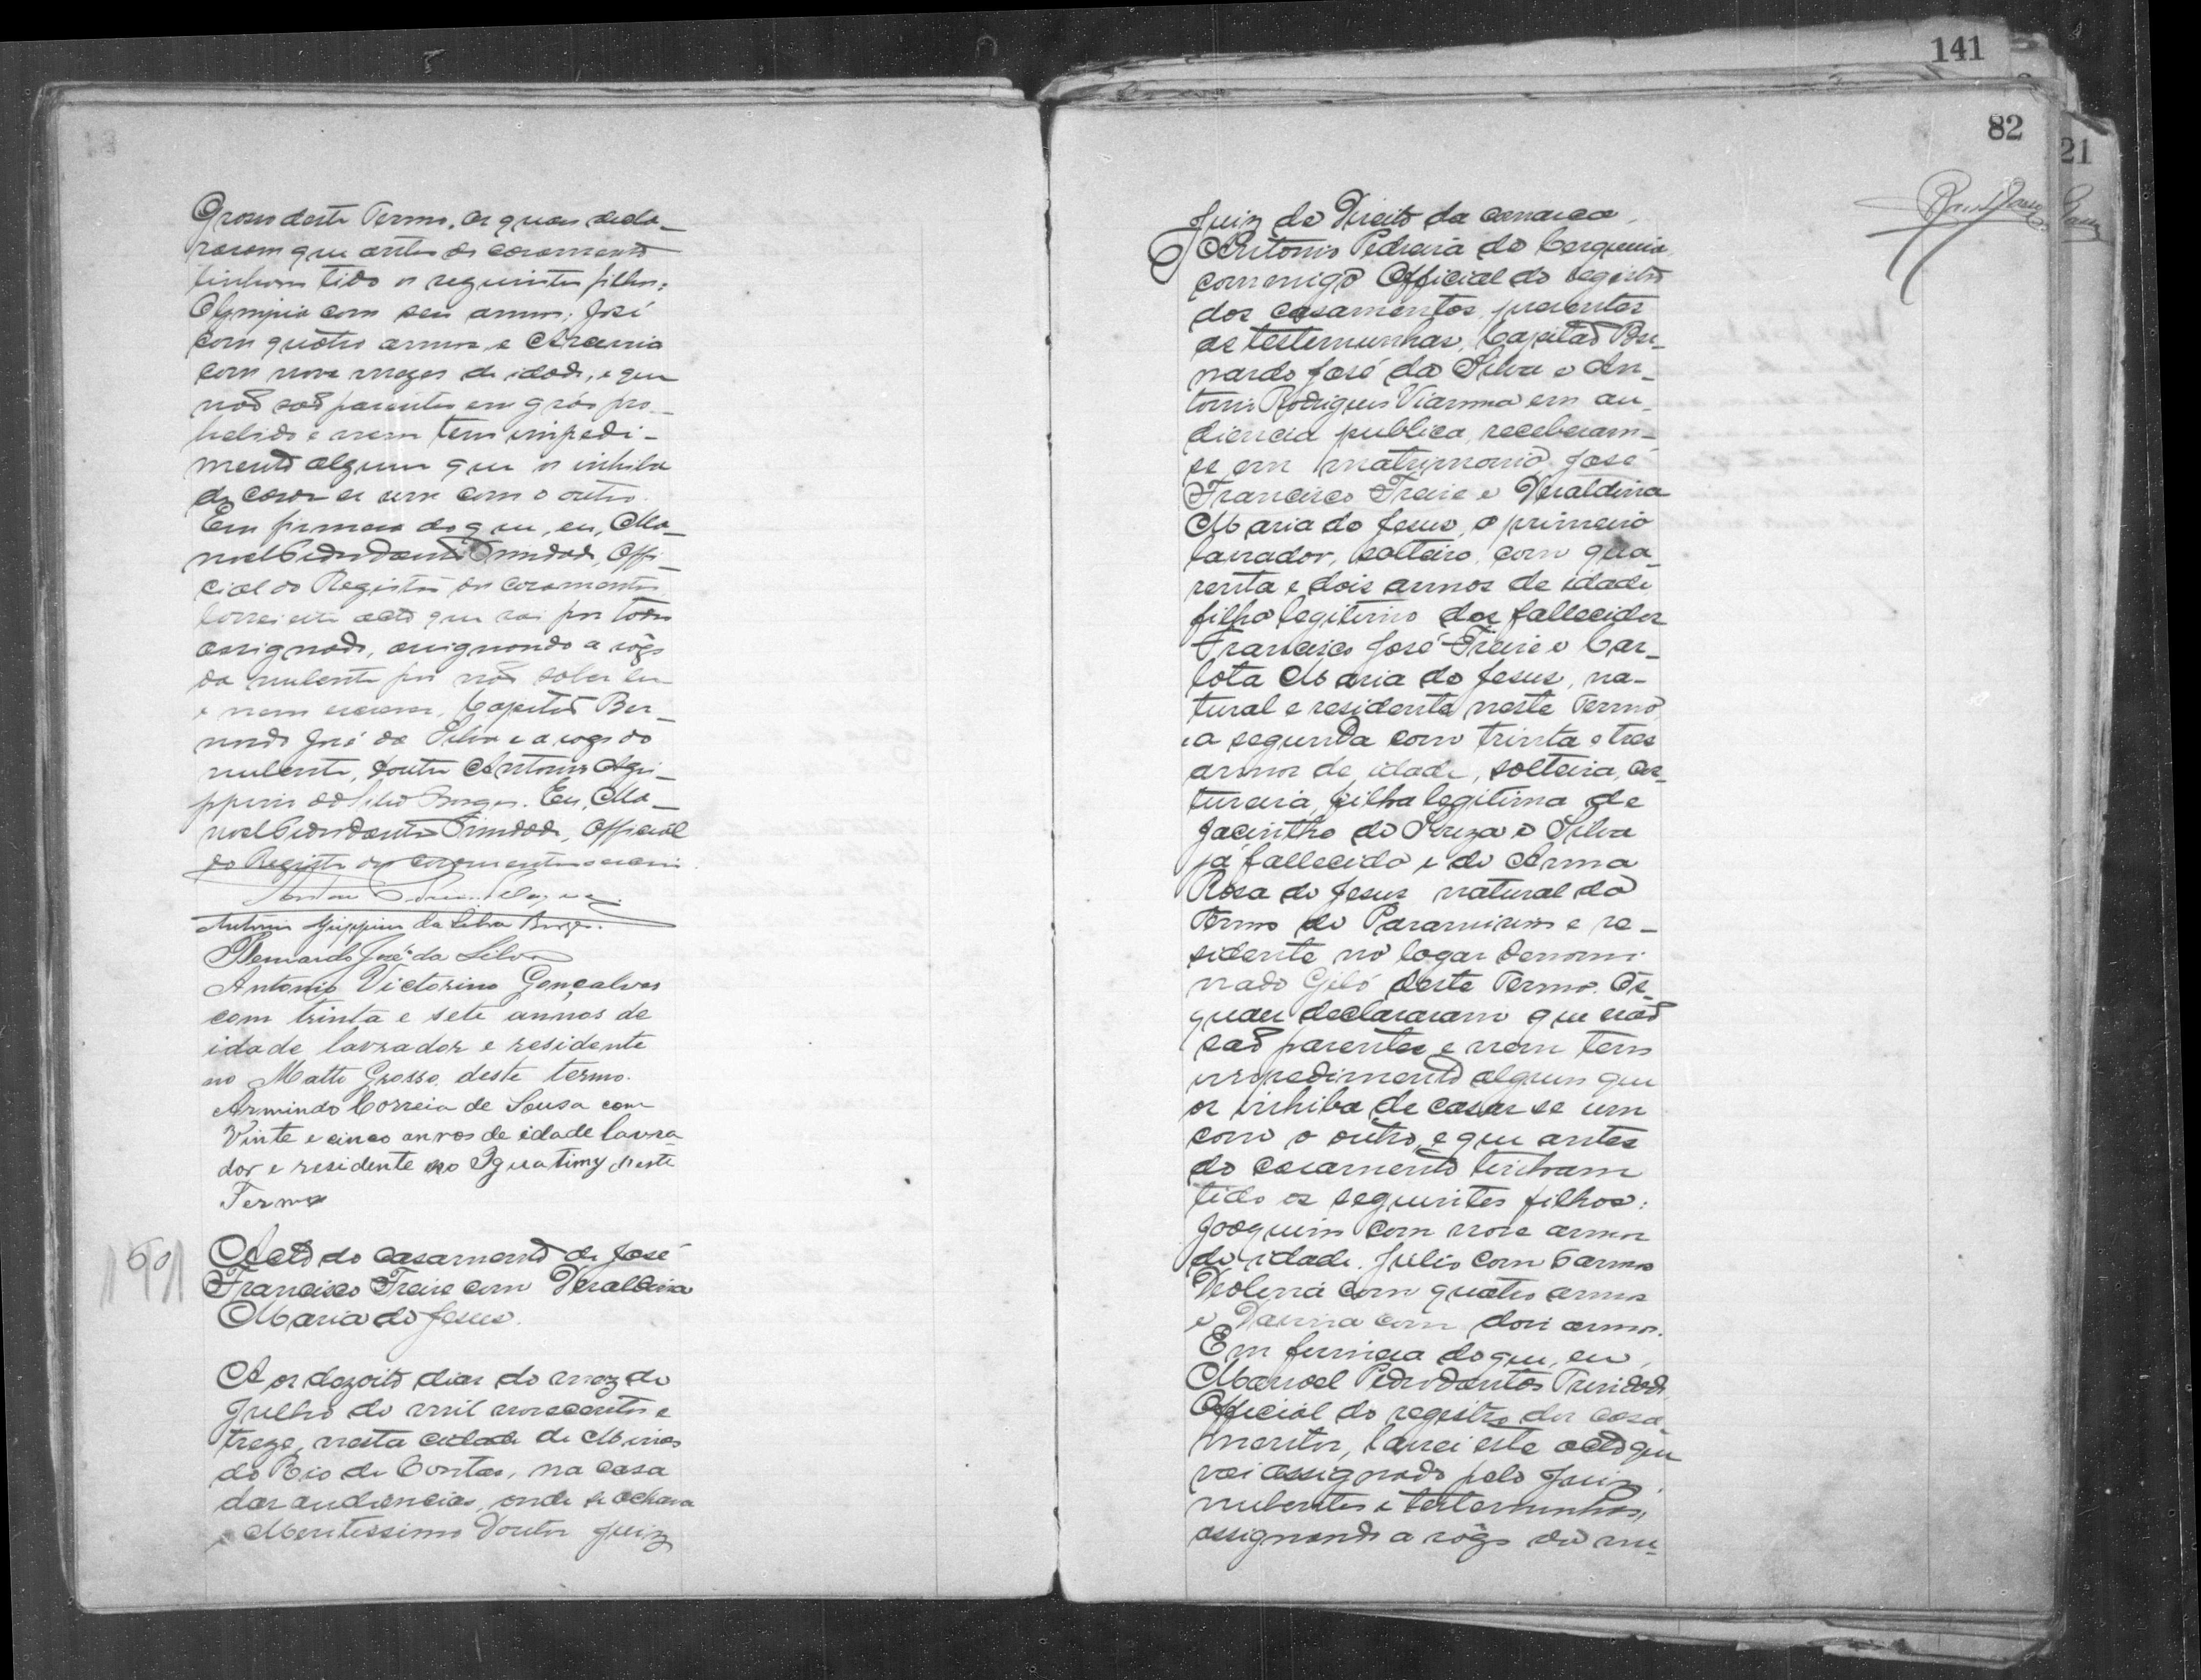 Grosso deste Termo. Os quaes decla_
raram que antes do casamento
tinham tido os seguintes filhos:
Olympia com seis annos; José
com quatro annos e
com nove mezes de idade, e que
não são parentes em gráo pro_
hebido e nem tem impedi_
mento algum que os inhiba
de casar se um com o outro.
Em firmeza do que, eu, Ma_
noel Pedro Dantas Trindade, Offi_
cial do Registro dos casamentos
lavrei este acto que vai por todos
assignado, assignando a rôgo
da nubente por não saber ler
e nem escrever, Capitão Ber_
nardo José da Silva e a rogo do
nubente, Doutor Antonio Agri_
ppino da Silva Borges. Eu, Ma_
noel Pedro Dantas Trindade, Official
do Registro dos casamentos escrevi.
Antonio Agrippino da Silva Borges.
Bernardo José da Silva
Antonio Victorino Gonçalves
com trinta e sete annos de
idade lavrador e residente
no Matto Grosso, deste termo.
Armindo Correia de Sousa com
Vinte e cinco annos de idade lavra_
dor e residente no Iguatimy deste
Termo
60
Acto do casamento de José
Francisco Freire com Veraldina
Maria de Jesus.
Aos dezoito dias do mez de
Julho de mil novecentos e
treze, nesta cidade de Minas
do Rio de Contas, na casa
das audiencias, onde se achava
o Meritissimo Doutor Juiz
141
82
21
Juiz de Direito da comarca,
Antonio Pedreira de Cerqueira,
commigo Official do registro
dos casamentos, presentes
as testemunhas, Capitão Ber_
nardo José da Silva e An_
tonio Rodrigues Vianna em au_
diencia publica, receberam_
se em matrimonio José
Francisco Freire e Veraldina
Maria de Jesus, o primeiro
lavrador, solteiro, com qua_
renta e dois annos de idade
filho legitimo dos fallecidos
Francisco José Freire e Car_
lota Maria de Jesus, na_
tural e residente neste Termo,
e a segunda com trinta e tres
annos de idade, solteira, cos_
tureira, filha legitima de
Jacintho de Souza e Silva
já fallecido e de Anna
Rosa de Jesus natural do
Termo de Paramirim e re_
sidente no logar denomi_
nado Giló deste Termo. Os_
quaes declararam que não
são parentes e nem tem
impedimento algum que
os inhiba de casar se um
com o outro, e que antes
do casamento tinham
tido os seguintes filhos:
Joaquim com nove annos
de idade. Julio com 6 annos
com quatro annos
e com dois annos.
Em firmeza do que, eu,
Manoel Pedro Dantas Trindade
Official do registro dos casa_
mentos, lavrei este acto que
vai assignado pelo Juiz,
nubentes e testemunhas,
assignando a rôgo da nu_